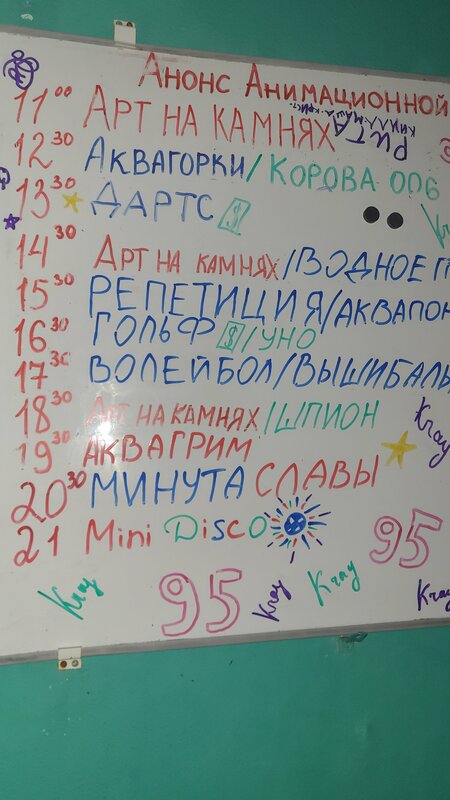 Анонс Анимационной
11⁰⁰ Арт на камнях Рита
12³⁰ Аквагорки/Корова 006
13³⁰ Дартс $
14³⁰ Арт на камнях/Водное п
15³⁰ Репетиция/Аквапон
16³⁰ Гольф $/Уно
17³⁰ Волейбол/Вышибалы
18³⁰ Арт на камнях/Шпион
19³⁰ Аквагрим
20³⁰ Минута Славы
21 Mini Disco
Kray
95
Kray 95 Kray Kray Kray